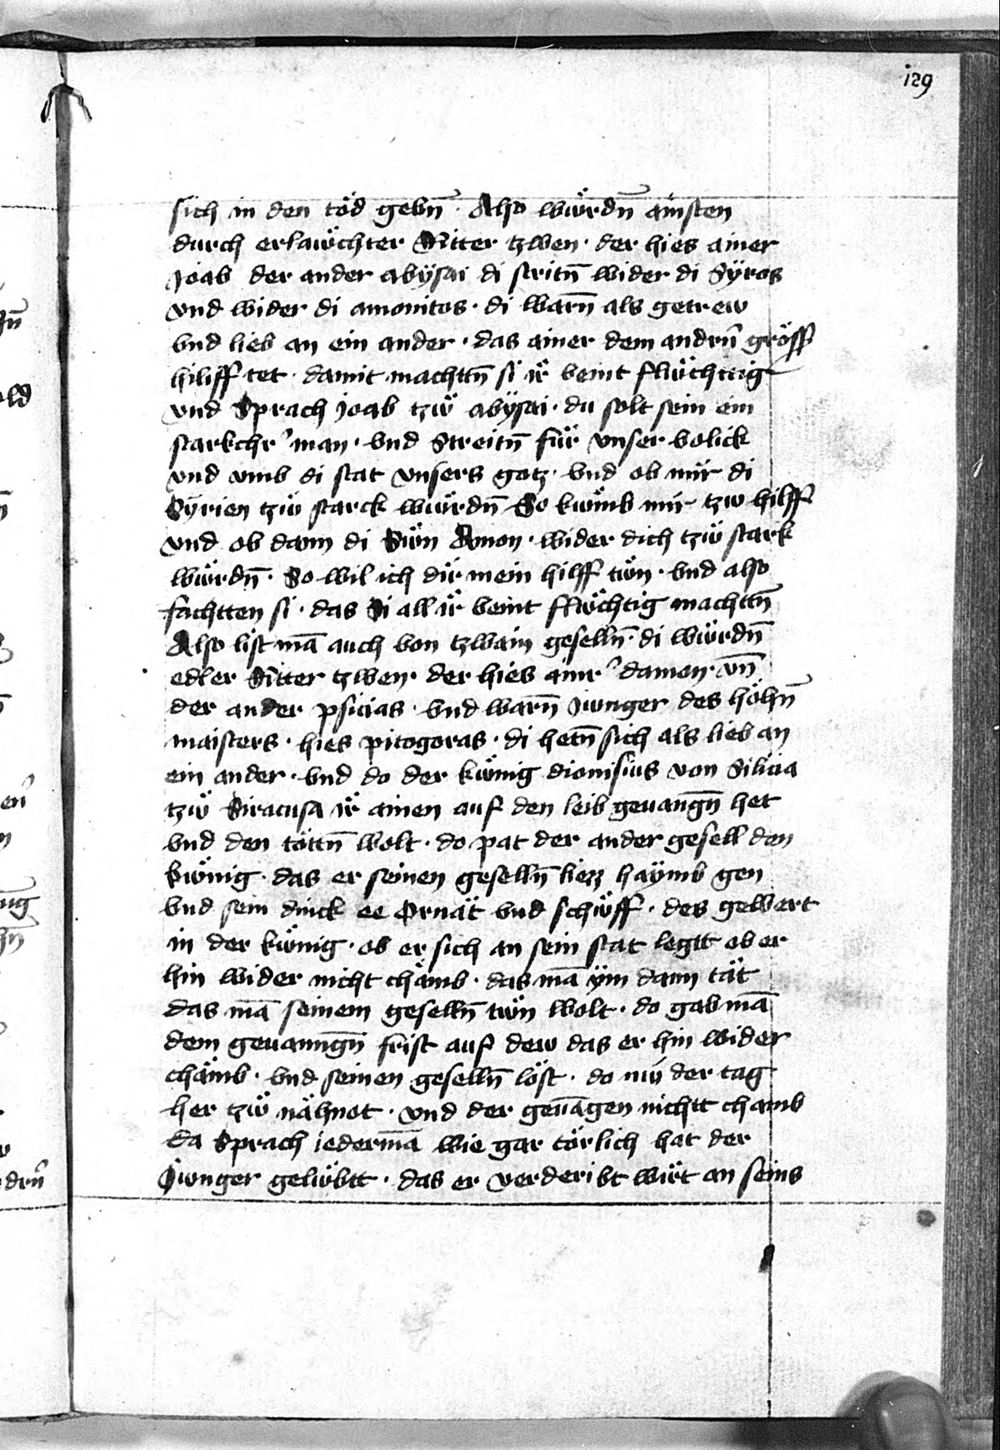 129
sich in den töd gebn̄ · Also wůrdn̄ ainsten
durch erlawchter Ritter tzwen · der hies ainer
Joab der ander abÿsai di stritn̄ wider di Sÿros
vnd wider di amonitos · di warn̄ als getrew
vnd lieb an ein ander · das ainer dem andrn̄ gröss
hiliff tet · damit machttn̄ si ir̈ veint flüchttig
vnd Sprach joab tzw̋ abÿsai · du solt sein ein
starkchr man · vnd Streitn̄ für vnser volick
vnd vmb di stat vnsers gotz · vnd ob mir di
Sÿrien tzw̋ starck wůrdn̄ So kwmb mir tzw hilff
vnd ob dann di Sẅn Amon · wider dich tzw̋ stark
wůrdn̄ · So wil ich dir mein hilff twn · vnd also
fachtten si · das Si all ir̈ veint flẅchtig machttn̄
Also list mā auch von tzwain geselln̄ · di wůrdn̄
edler Ritter tzwen · der hies ainr damon · vn̄
der ander psicias · vnd warn̄ Jwnger des höhn̄
maisters · hies pitogoras · di hetn̄ sich als lieb an
ein ander · vnd do der kẅnig dionisius von Silicia
tzw̋ Siracusa ir̈ ainen auf den leib geuangn̄ het
vnd den töttn̄ wolt · do pat der ander gesell den
kẅnig · das er seinen geselln̄ liezz haÿmb gen
vnd sein dinck ee Ornät vnd schẅff · des gewert
in der kẅnig · ob er sich an sein stat legtt ob er
hin wider nicht chämb · das mā ÿm dann tät
das mā seinem geselln̄ twn wolt · do gab mā
dem geuanngn̄ frist auf dew das er hin wider
chämb · vnd seinen geselln̄ löst · do nű der tag
her tzw̋ nähnot · vnd der geūagen nichtt chamb
da Sprach iedermā wie gar törlich hat der
Jwnger gelübtt · das er verderibt wirt an seins